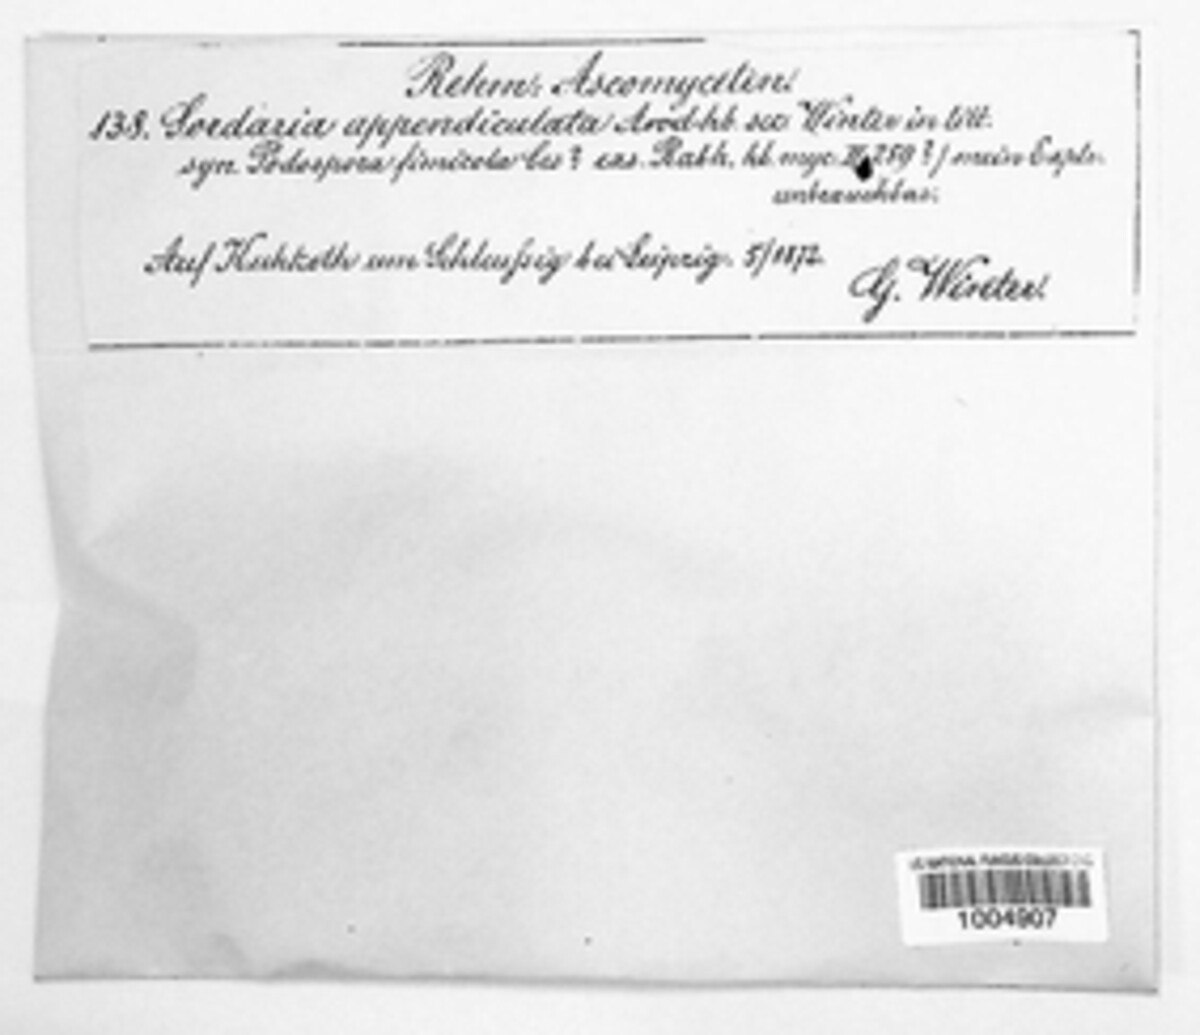 Rehm: Ascomyceten.
138. Sordaria appendiculata Awd. hb. sec. Winter in litt.
syn. Podospora fimicola Ces? exs. Rabh. hb. myc. II 259?) mein Explr.
unbrauchbar.
Auf Kuhkoth um Schleussig bei Leipzig. 5/1872
G. Winter.
US NATIONAL FUNGUS COLLECTIONS
1004907